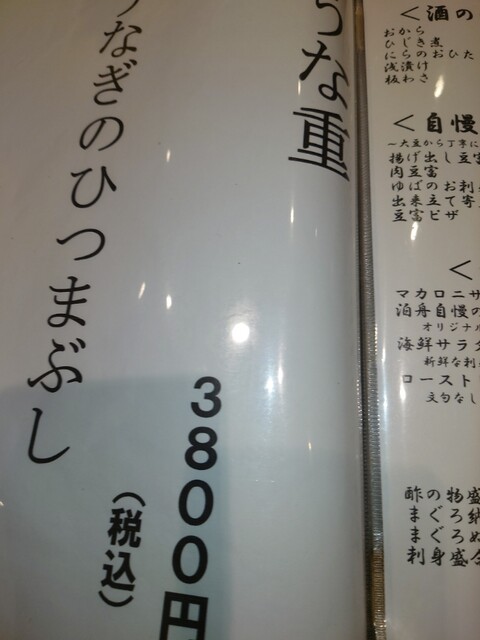 うな重
うなぎのひつまぶし
3800円
(税込)
<酒の
おから
ひじき煮
にらのおひた
浅漬け
板わさ
<自慢
~大豆から丁寧に
揚げ出し豆富
肉豆富
ゆばのお刺
出来立て寄
豆富ピザ
<
マカロニサ
泊舟自慢の
オリジナル
海鮮サラダ
新鮮な刺
ロースト
文句なし
酢の物盛
まぐろ納
まぐろぬ
刺身盛合